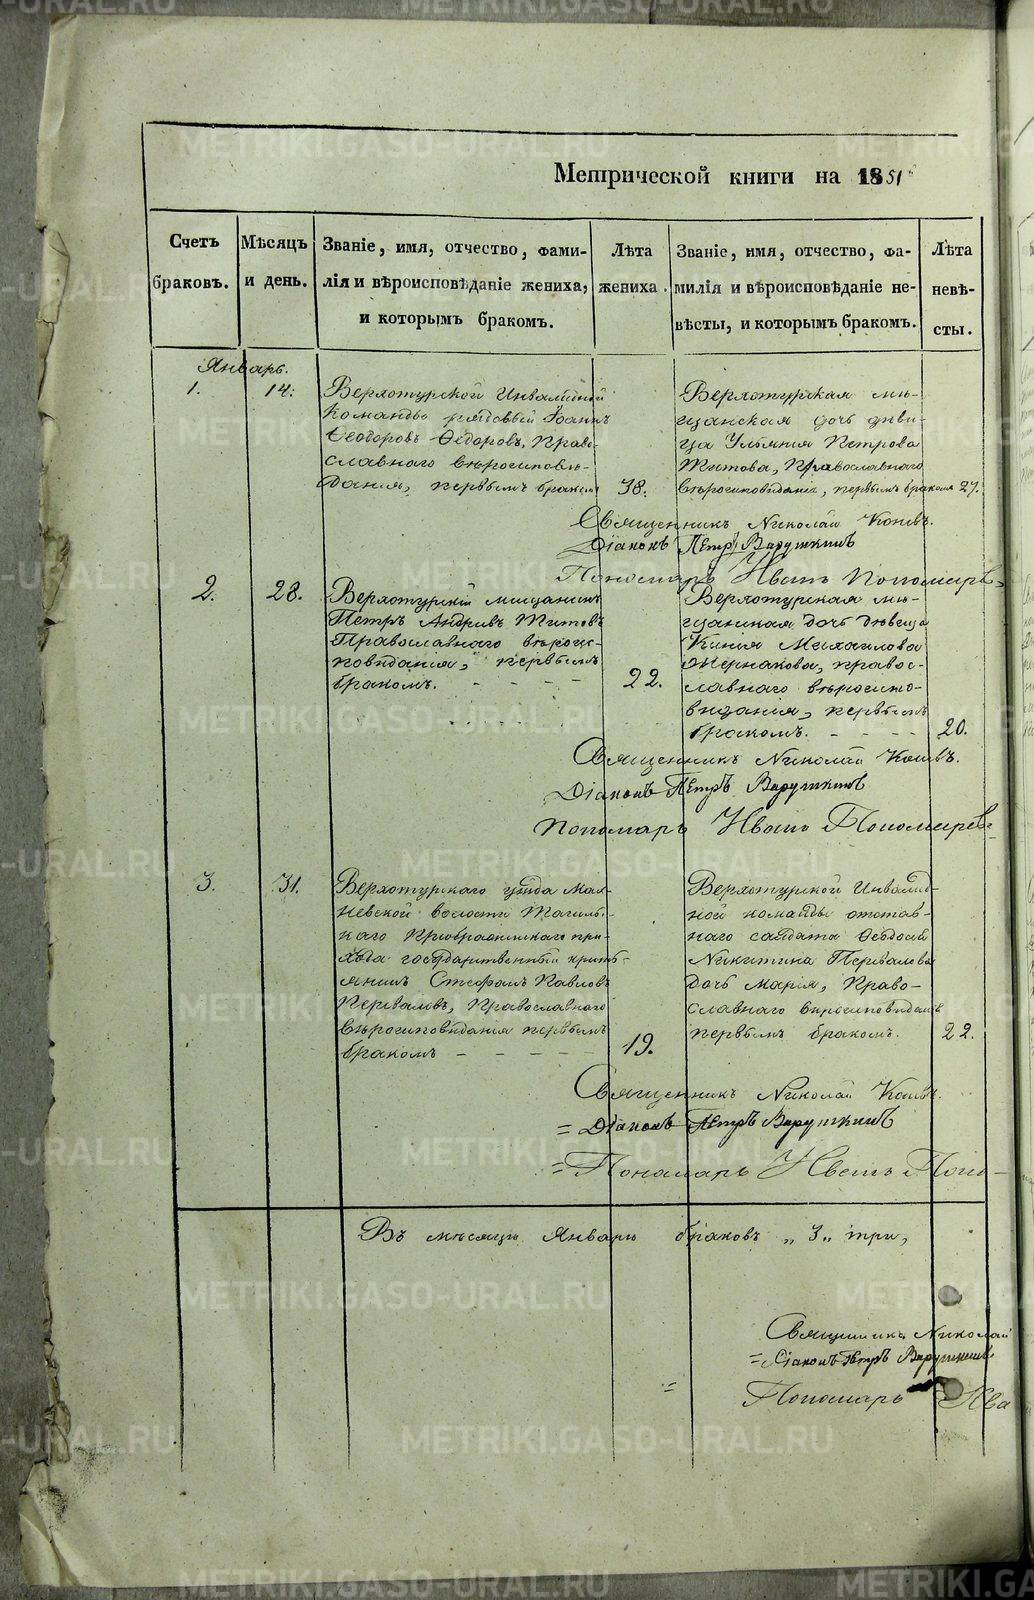 METRIKI.GASO-URAL.RU
Метрической книги на 1851
Счетъ браковъ.
Мѣсяцъ и день.
Званіе, имя, отчество, фами-
лія и вѣроисповѣданіе жениха,
и которымъ бракомъ.
Лѣта жениха.
Званіе, имя, отчество, фа-
милія и вѣроисповѣданіе не-
вѣсты, и которымъ бракомъ.
Лѣта невѣ-
сты.
Январь.
1. 14.
Верхотурской Инвалидной
команды рядовый Іоаннъ
Ѳеодоровъ Ѳедоровъ, Право-
славнаго вѣроисповѣ-
данія, первымъ бракомъ
38.
Верхотурская мѣ-
щанская дочь дѣви-
ца Петрова
Титова, Православнаго
вѣроисповѣданія, первымъ бракомъ 27.
Священникъ Николай
Діаконъ Петръ Варушкинъ
Пономарь Иванъ Пономаревъ
2. 28.
Верхотурскій мѣщанинъ
Петръ Андріевъ Титовъ
Православнаго вѣроис-
повѣданія, первымъ
бракомъ. - - - -
22.
Верхотурская мѣ-
щанская дочь дѣвица
Михаилова
православ-
славнаго вѣроиспо-
вѣданія, первымъ
бракомъ. - - - -
20.
Священникъ Николай
Діаконъ Петръ Варушкинъ
Пономарь Иванъ Пономаревъ
3. 31.
Верхотурскаго уѣзда Мах-
невской волости Тагиль-
скаго Преображенскаго при-
хода государственный кресть-
янинъ Стефанъ Павловъ
Перваловъ, Православнаго
вѣроисповѣданія первымъ
бракомъ - - - - -
19.
Верхотурской Инвалид-
ной команды отстав-
наго солдата Ѳеодосія
Никитина Первалова
дочь Марія, Право-
славнаго вѣроисповѣданія
первымъ бракомъ.
22.
Священникъ Николай
= Діаконъ Петръ Варушкинъ
= Пономарь Иванъ Поно-
Въ мѣсяцѣ Январѣ браковъ „3„ три,
Священникъ Николай
= Діаконъ Петръ Варушкинъ
= Пономарь Ива